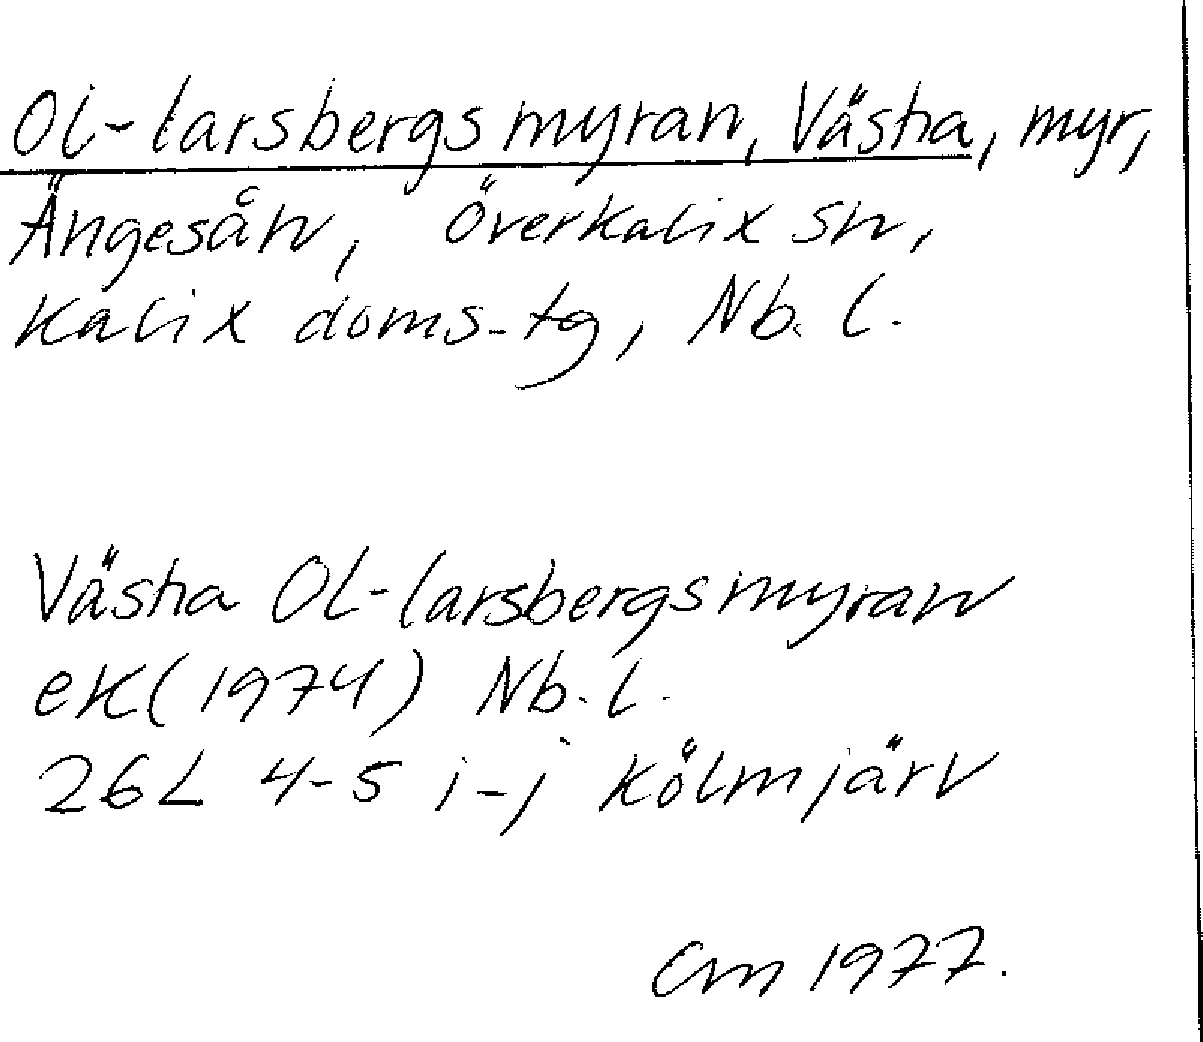 Ol-larsbergsmyran, Västra, myr,
Ängesån, Överkalix sn,
Kalix doms-tg, Nb. l.
Västra Ol-larsbergsmyran
eK(1974) Nb. l.
26L 4-5 i-j Kölmjärv
Cm 1977.